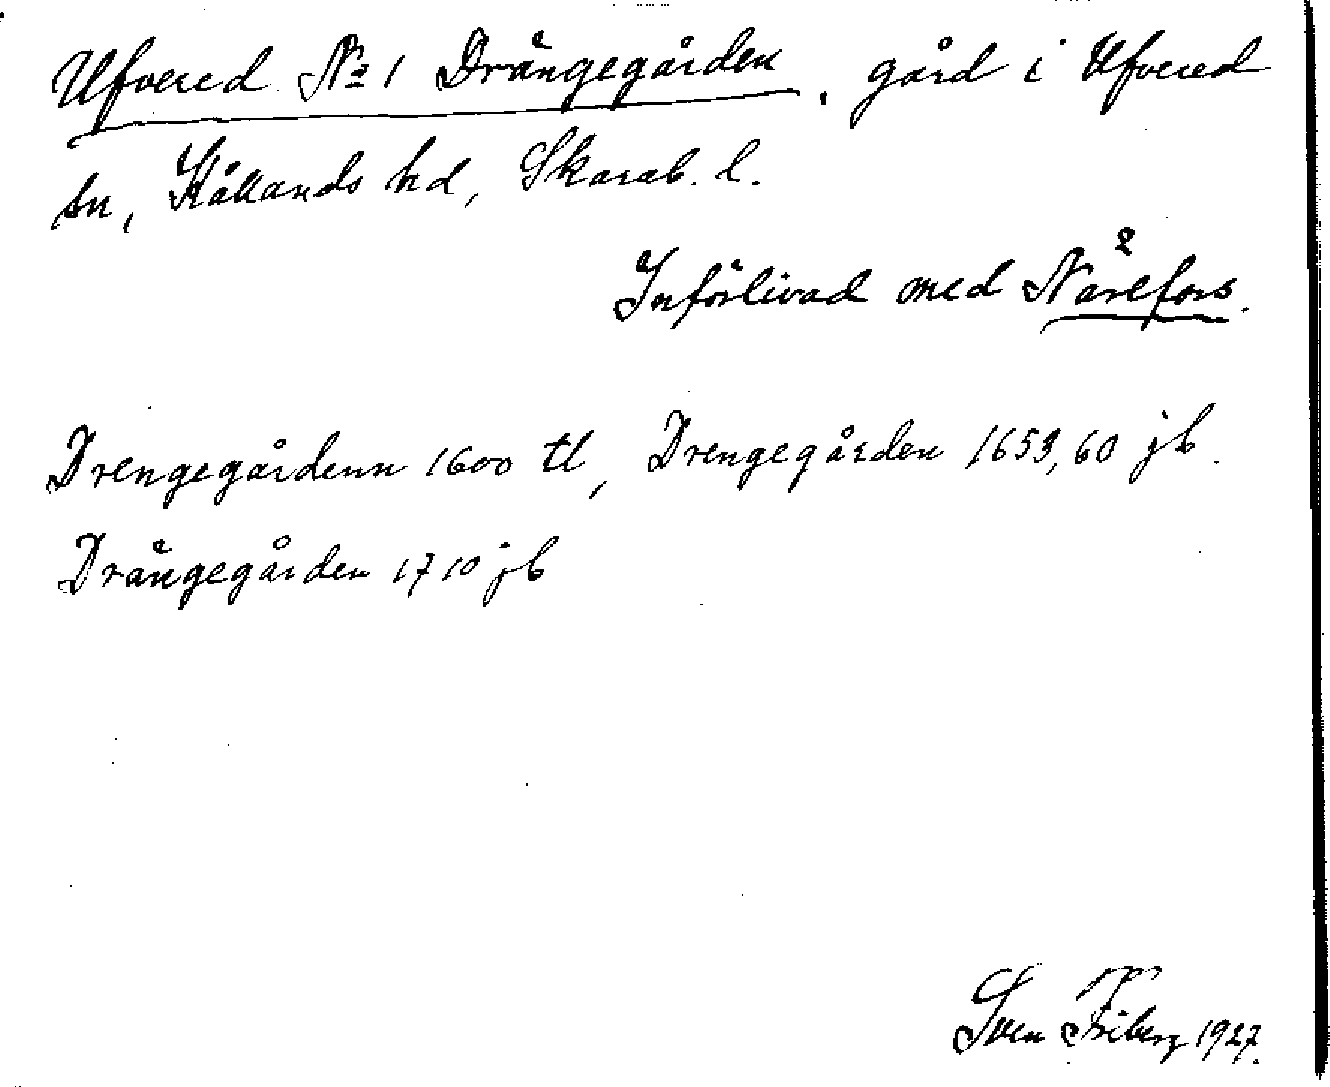 Ufvered No 1 Drängegården, gård i Ufvered
sn, Kållands hd, Skarab. l.
Införlivad med Nårefors.
Drengegårdenn 1600 tl, Drengegården 1653, 60 jb.
Drängegården 1710 jb
Sven Friberg 1927.